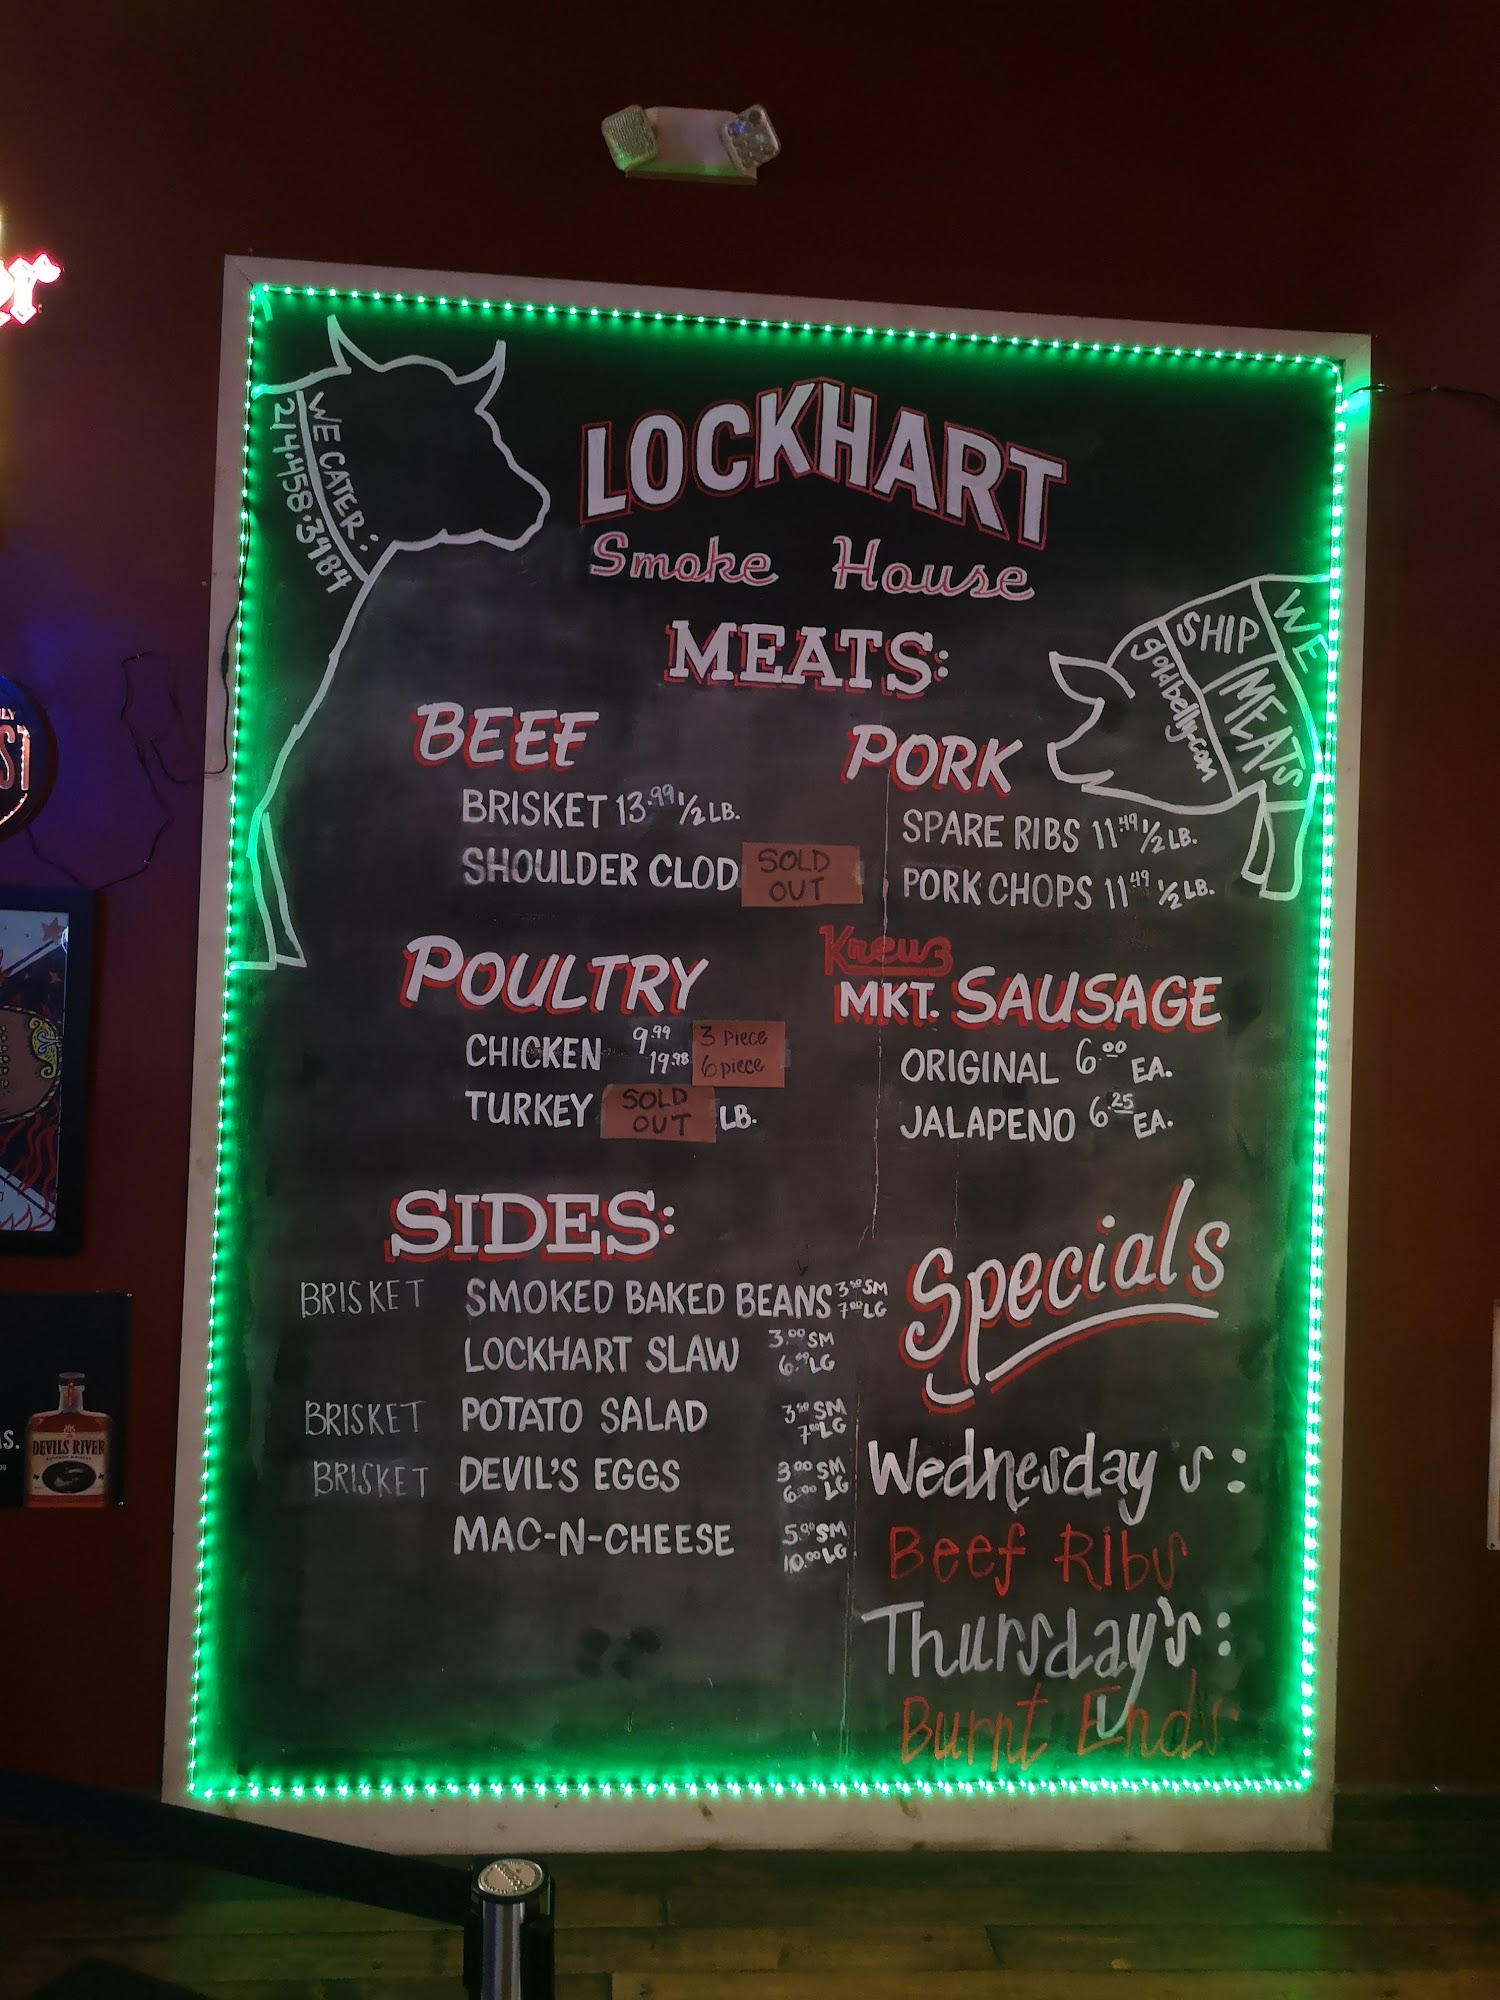 WE CATER:
214.458.3484
LOCKHART
Smoke House
WE
SHIP MEATS
goldbelly.com
MEATS:
BEEF
BRISKET 13.99 1/2 LB.
SHOULDER CLOD SOLD OUT
PORK
SPARE RIBS 11.49 1/2 LB.
PORK CHOPS 11.49 1/2 LB.
POULTRY
CHICKEN 9.99 3 Piece
19.98 6 piece
TURKEY SOLD OUT LB.
Kreuz
MKT. SAUSAGE
ORIGINAL 6.00 EA.
JALAPENO 6.25 EA.
SIDES:
BRISKET SMOKED BAKED BEANS 3.50 SM
7.00 LG
LOCKHART SLAW 3.00 SM
6.00 LG
BRISKET POTATO SALAD 3.50 SM
7.00 LG
BRISKET DEVIL'S EGGS 3.00 SM
6.00 LG
MAC-N-CHEESE 5.00 SM
10.00 LG
Specials
Wednesday's:
Beef Ribs
Thursday's:
Burnt Ends
DEVILS RIVER